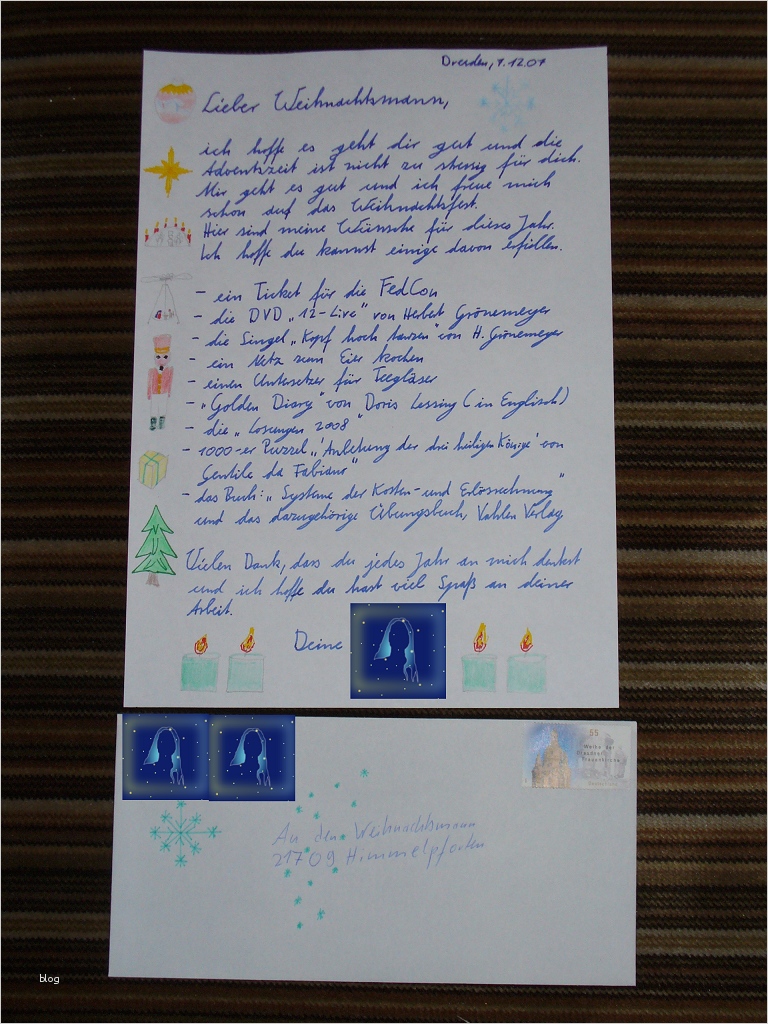 Dresden, 9.12.07
Lieber Weihnachtsmann,
ich hoffe es geht dir gut und die
Adventszeit ist nicht zu stressig für dich.
Mir geht es gut und ich freue mich
schon auf das Weihnachtsfest.
Hier sind meine Wünsche für dieses Jahr.
Ich hoffe du kannst einige davon erfüllen.
- ein Ticket für die FedCon
- die DVD „12-Live" von Herbert Grönemeyer
- die Singel „Kopf hoch tanzen" von H. Grönemeyer
- ein Netz zum Eier kochen
- einen Untersetzer für Teegläser
- „Golden Diary" von Doris Lessing (in Englisch)
- die „Losungen 2008"
- 1000-er Puzzel „Anbetung der drei heiligen Könige' von
Gentile da Fabiano"
- das Buch: „Systeme der Kosten- und Erlösrechnung"
und das dazugehörige Übungsbuch, Vahlen Verlag
Vielen Dank, dass du jedes Jahr an mich denkst
und ich hoffe du hast viel Spaß an deiner
Arbeit.
Deine
55
Weihe der
Dresdner
Frauenkirche
An den Weihnachtsmann
21709 Himmelpforten
blog